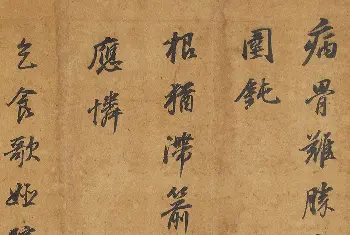 病骨難勝
圍鈍
根猶滯箭
應憐
乞食歌姬院